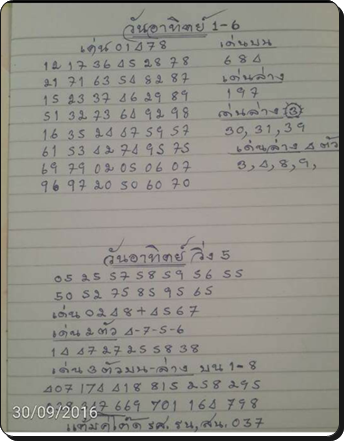 วันอาทิตย์ 1-6
เด่น 01478
12 17 36 45 28 78
21 71 63 54 82 87
15 23 37 46 29 89
51 32 73 64 92 98
16 35 24 47 59 57
61 53 42 74 95 75
69 79 02 05 06 07
96 97 20 50 60 70
เด่นบน
6 8 4
เด่นล่าง
1 9 7
เด่นล่าง 3
30, 31, 39
เด่นล่าง 4 ตัว
3, 4, 8, 9,
วันอาทิตย์ วิ่ง 5
05 25 57 58 59 56 55
50 52 75 85 95 65
เด่น 0248 + 4567
เด่น 2 ตัว 4-7-5-6
14 47 27 25 58 38
เด่น 3 ตัวบน-ล่าง บน 1-8
407 174 418 815 258 295
047 669 701 164 798
30/09/2016
037